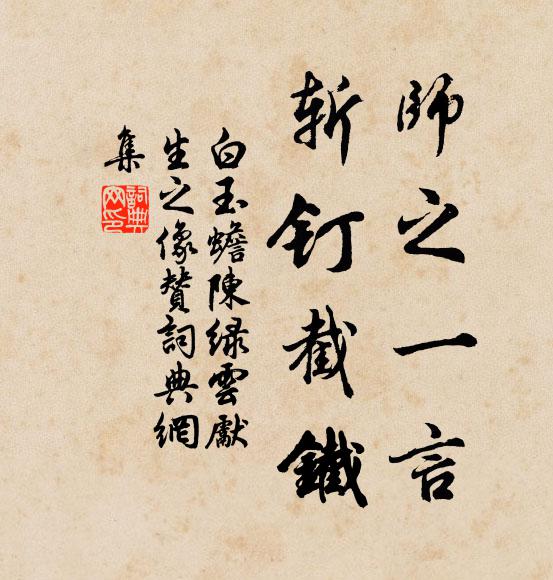 師之一言
斬釘截鐵
白玉蟾陳綠雲獻
生之像贊詞典網
集
詞典網印